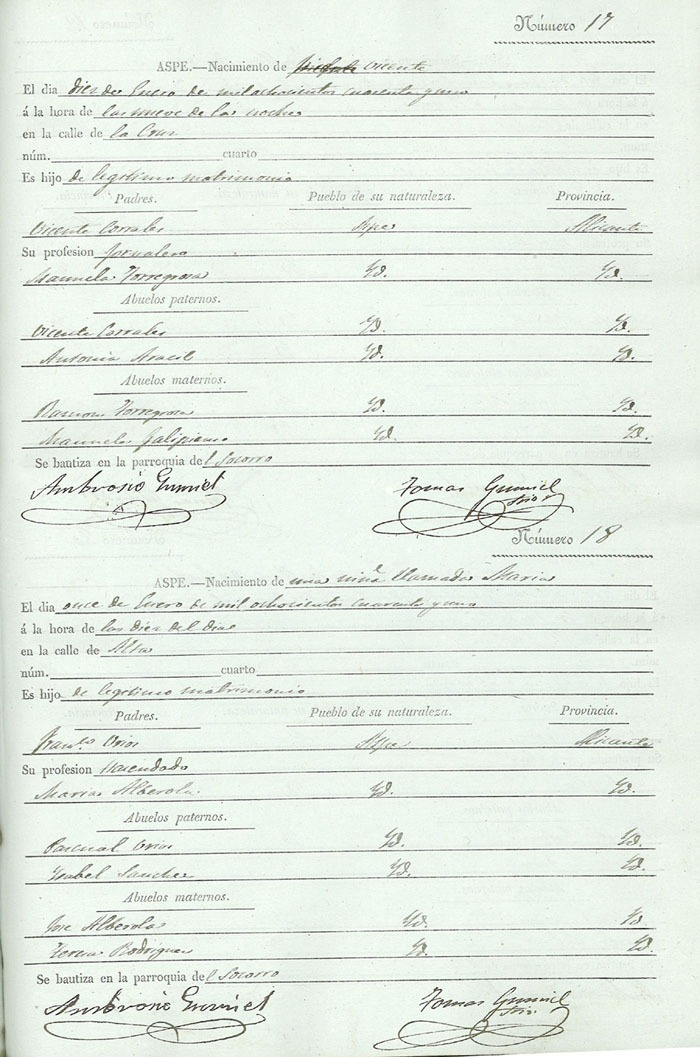 Número 17
ASPE.—Nacimiento de Vicente
El dia diez de Enero de mil ochocientos cuarenta y uno
á la hora de las nueve de la noche
en la calle de la Cruz
núm. cuarto
Es hijo de legitimo matrimonio
Padres. Pueblo de su naturaleza. Provincia.
Vicente Corrales Aspe Alicante
Su profesion Jornalero
Manuela Torregrosa Yd. Yd.
Abuelos paternos.
Vicente Corrales Yd. Yd.
Antonia Aracil Yd. Yd.
Abuelos maternos.
Ramon Torregrosa Yd. Yd.
Manuela Galipienso Yd. Yd.
Se bautiza en la parroquia del Socorro
Ambrosio Gumiel Tomas Gumiel
Srio
Número 18
ASPE.—Nacimiento de una niña llamada Maria
El dia once de Enero de mil ochocientos cuarenta y uno
á la hora de las diez del dia
en la calle de Alta
núm. cuarto
Es hijo de legitimo matrimonio
Padres. Pueblo de su naturaleza. Provincia.
Franco. Orios Aspe Alicante
Su profesion Hacendado
Maria Alberola Yd. Yd.
Abuelos paternos.
Pascual Orios Yd. Yd.
Ysabel Sanchez Yd. Yd.
Abuelos maternos.
Jose Alberola Yd. Yd.
Teresa Rodriguez Yd. Yd.
Se bautiza en la parroquia del Socorro
Ambrosio Gumiel Tomas Gumiel
Srio.